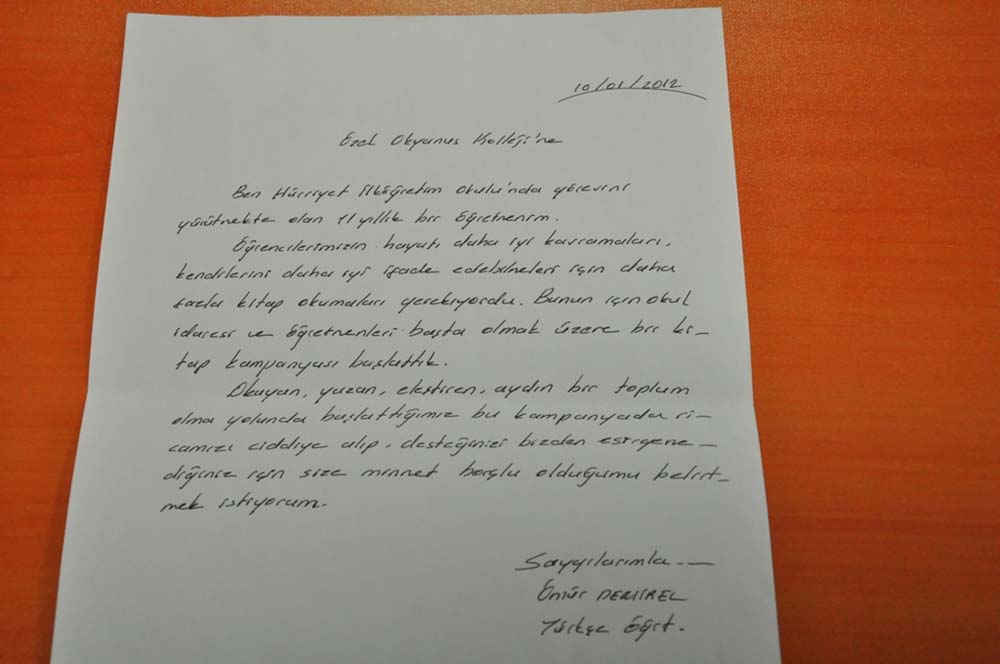 10/01/2012
Özel Okyanus Koleji'ne
Ben Hürriyet İlköğretim Okulu'nda görevini
yürütmekte olan 11 yıllık bir öğretmenim.
Öğrencilerimizin hayatı daha iyi kavramaları,
kendilerini daha iyi ifade edebilmeleri için daha
fazla kitap okumaları gerekiyordu. Bunun için okul
idaresi ve öğretmenleri başta olmak üzere bir ki-
tap kampanyası başlattık.
Okuyan, yazan, eleştiren, aydın bir toplum
olma yolunda başlattığımız bu kampanyada ri-
camızı ciddiye alıp, desteğinizi bizden esirgeme-
diğiniz için size minnet borçlu olduğumu belirt-
mek istiyorum.
Saygılarımla...
Ömür DEMİREL
Türkçe Öğrt.